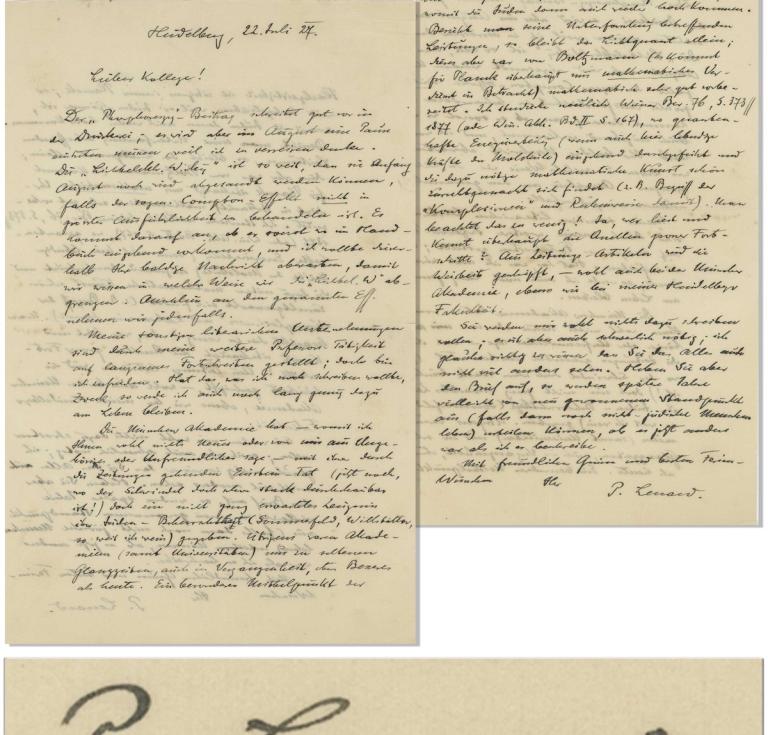 Heidelberg, 22. Juli 27.
Lieber Kollege!
Der „Phosphoreszenz"-Beitrag schreitet gut vor in
der Druckerei; es wird aber im August eine Pause
eintreten müssen, weil ich zu verreisen denke.
Die „Lichtelektr. Wirkg" ist so weit, dass sie Anfang
August noch wird abgesandt werden können,
falls der sogen. Compton-Effekt nicht in
grösster Ausführlichkeit zu behandeln ist. Es
kommt darauf an, ob er sonst wo im Hand-
buch eingehend vorkommt, und ich wollte hier-
halb Ihre baldige Nachricht abwarten, damit
wir wissen in welcher Weise wir die „Lichtel. W" ab-
grenzen. Anschluss an den genannten Eff.
nehmen wir jedenfalls.
Meine sonstigen literarischen Unternehmungen
sind durch meine weitere Professor-Tätigkeit
auf langsames Fortschreiten gestellt; doch bin
ich zufrieden. Hat das was ich noch schreiben wollte,
Zweck, so werde ich auch noch lang genug dazu
am Leben bleiben.
Die Münchner Akademie hat – womit ich
Ihnen wohl nichts Neues oder von mir aus Unge-
höriges oder Unfreundliches sage – mit ihrer durch
die Zeitungen gehenden Einstein-Tat (jetzt noch,
wo der Schwindel doch schon stark durchschaubar
ist!) doch ein nicht ganz erwartetes Zeugnis
ihrer Juden-Beherrschtheit (Sommerfeld, Willstätter,
so weit ich weiss) gegeben. Übrigens waren Akade-
mien (samt Universitäten) nur zu seltenen
Glanzzeiten, auch in Vergangenheit, etwas Besseres
als heute. Ein besonderer Mittelpunkt der
womit die Juden dann auch wieder hoch kommen.
Besieht man seine Unterfangung betreffenden
Leistungen, so bleibt das Lichtquant allein;
dieses aber war von Boltzmann (es kommt
für Planck überhaupt nur mathematisches Ver-
dienst in Betracht) mathematisch sehr gut vorbe-
reitet. Ich studierte neulich Wiener Ber. 76, S. 373//
1877 (oder Wiss. Abh. Bd. II S. 167), wo quanten-
hafte Energieverteilg (wenn auch hier lebendige
Kräfte der Moleküle) eingehend durchgeführt und
die dazu nötige mathematische Kunst schön
zurechtgemacht sich findet (z.B. Begriff der
„Komplexionen" und Rechenweise damit). Man
beachtet das zu wenig! Ja, wer liest und
kennt überhaupt die Quellen grosser Fort-
schritte? Aus Zeitungs-Artikeln wird die
Weisheit geschöpft, – wohl auch bei der Münchner
Akademie, ebenso wie bei meiner Heidelberger
Fakultät.
Sie werden mir wohl nichts dazu schreiben
wollen; es ist aber auch schwerlich nötig; ich
glaube richtig zu wissen dass Sie das Alles auch
nicht viel anders sehen. Heben Sie aber
den Brief auf, so werden spätere Jahre
vielleicht von neu gewonnenem Standpunkt
aus (falls dann noch nicht-jüdische Menschen
leben) urteilen können, ob es jetzt anders
war als ich es beschreibe.
Mit freundlichen Grüssen und besten Ferien-
Wünschen Ihr
P. Lenard.